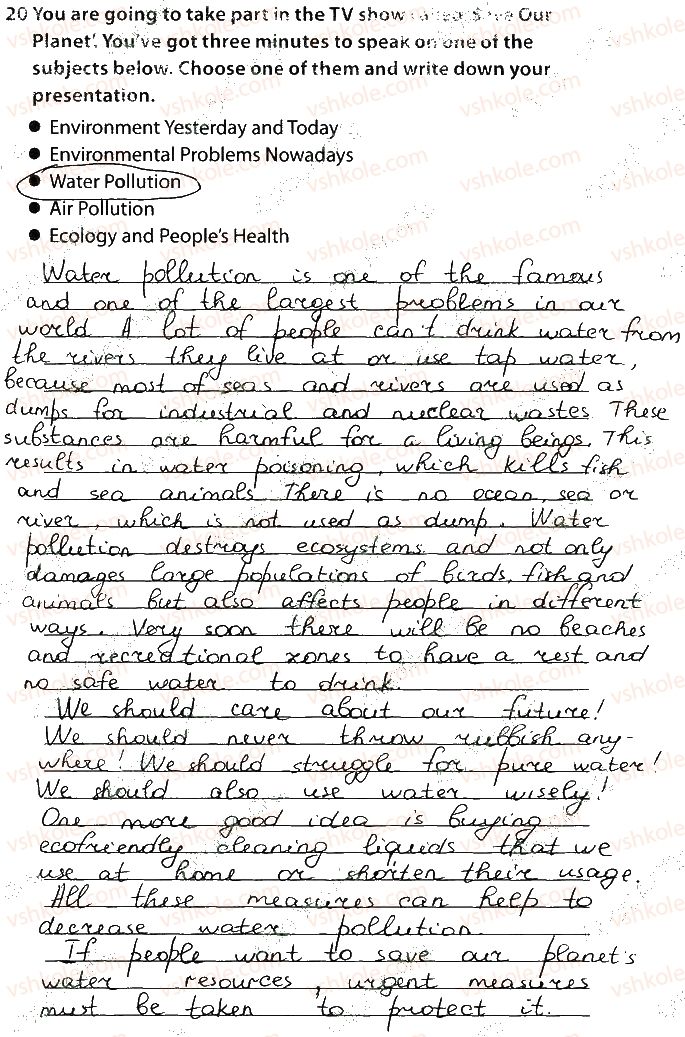 20 You are going to take part in the TV show called 'Save Our
Planet'. You've got three minutes to speak on one of the
subjects below. Choose one of them and write down your
presentation.
● Environment Yesterday and Today
● Environmental Problems Nowadays
● Water Pollution
● Air Pollution
● Ecology and People's Health
Water pollution is one of the famous
and one of the largest problems in our
world. A lot of people can't drink water from
the rivers they live at or use tap water,
because most of seas and rivers are used as
dumps for industrial and nuclear wastes. These
substances are harmful for a living beings. This
results in water poisoning, which kills fish
and sea animals. There is no ocean, sea or
river, which is not used as dump. Water
pollution destroys ecosystems and not only
damages large populations of birds, fish and
animals but also affects people in different
ways. Very soon there will be no beaches
and recreational zones to have a rest and
no safe water to drink.
We should care about our future!
We should never throw rubbish any-
where! We should struggle for pure water!
We should also use water wisely!
One more good idea is buying
ecofriendly cleaning liquids that we
use at home or shorten their usage.
All these measures can help to
decrease water pollution.
If people want to save our planet's
water resources, urgent measures
must be taken to protect it.
vshkole.com